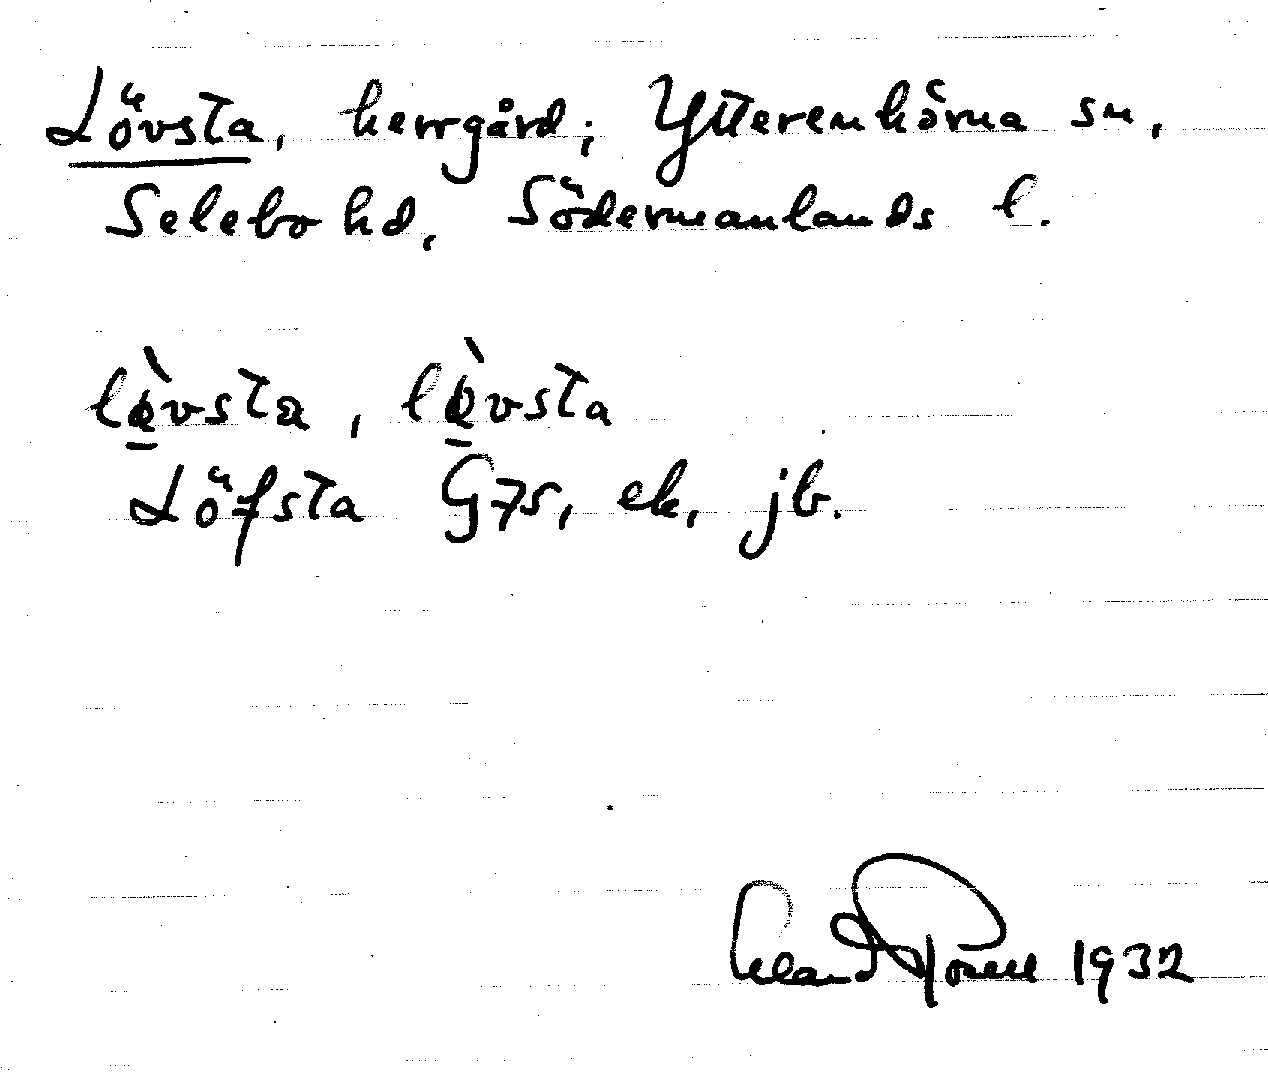 Lövsta, herrgård; Ytterenhörna sn,
Selebo hd, Södermanlands l.
lø̀vsta, lø̀vsta
Löfsta G75, ek, jb.
1932